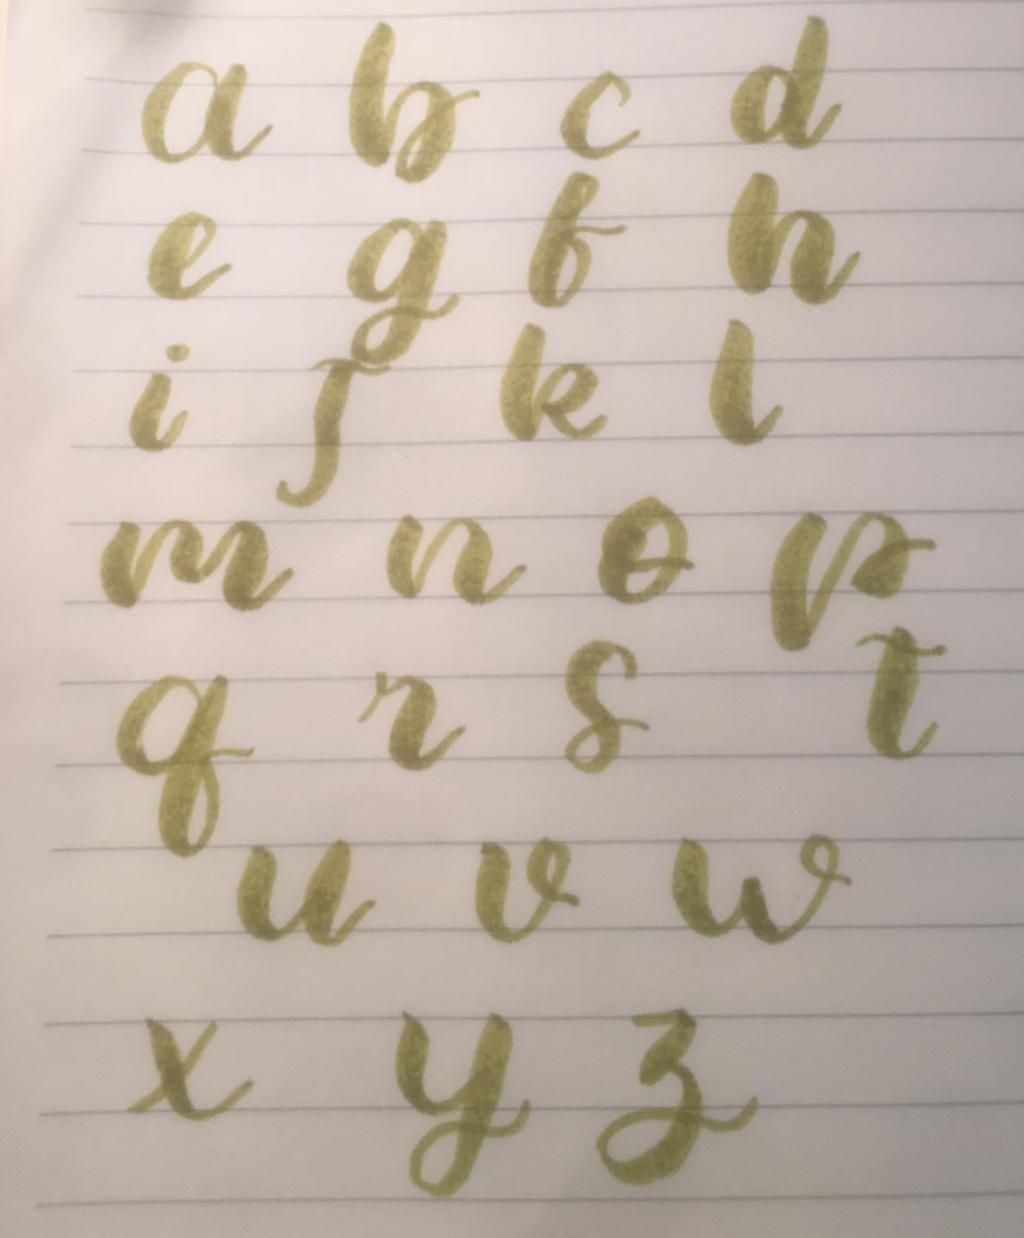 a b c d
e g f h
i j k l
m n o p
q r s t
u v w
x y z